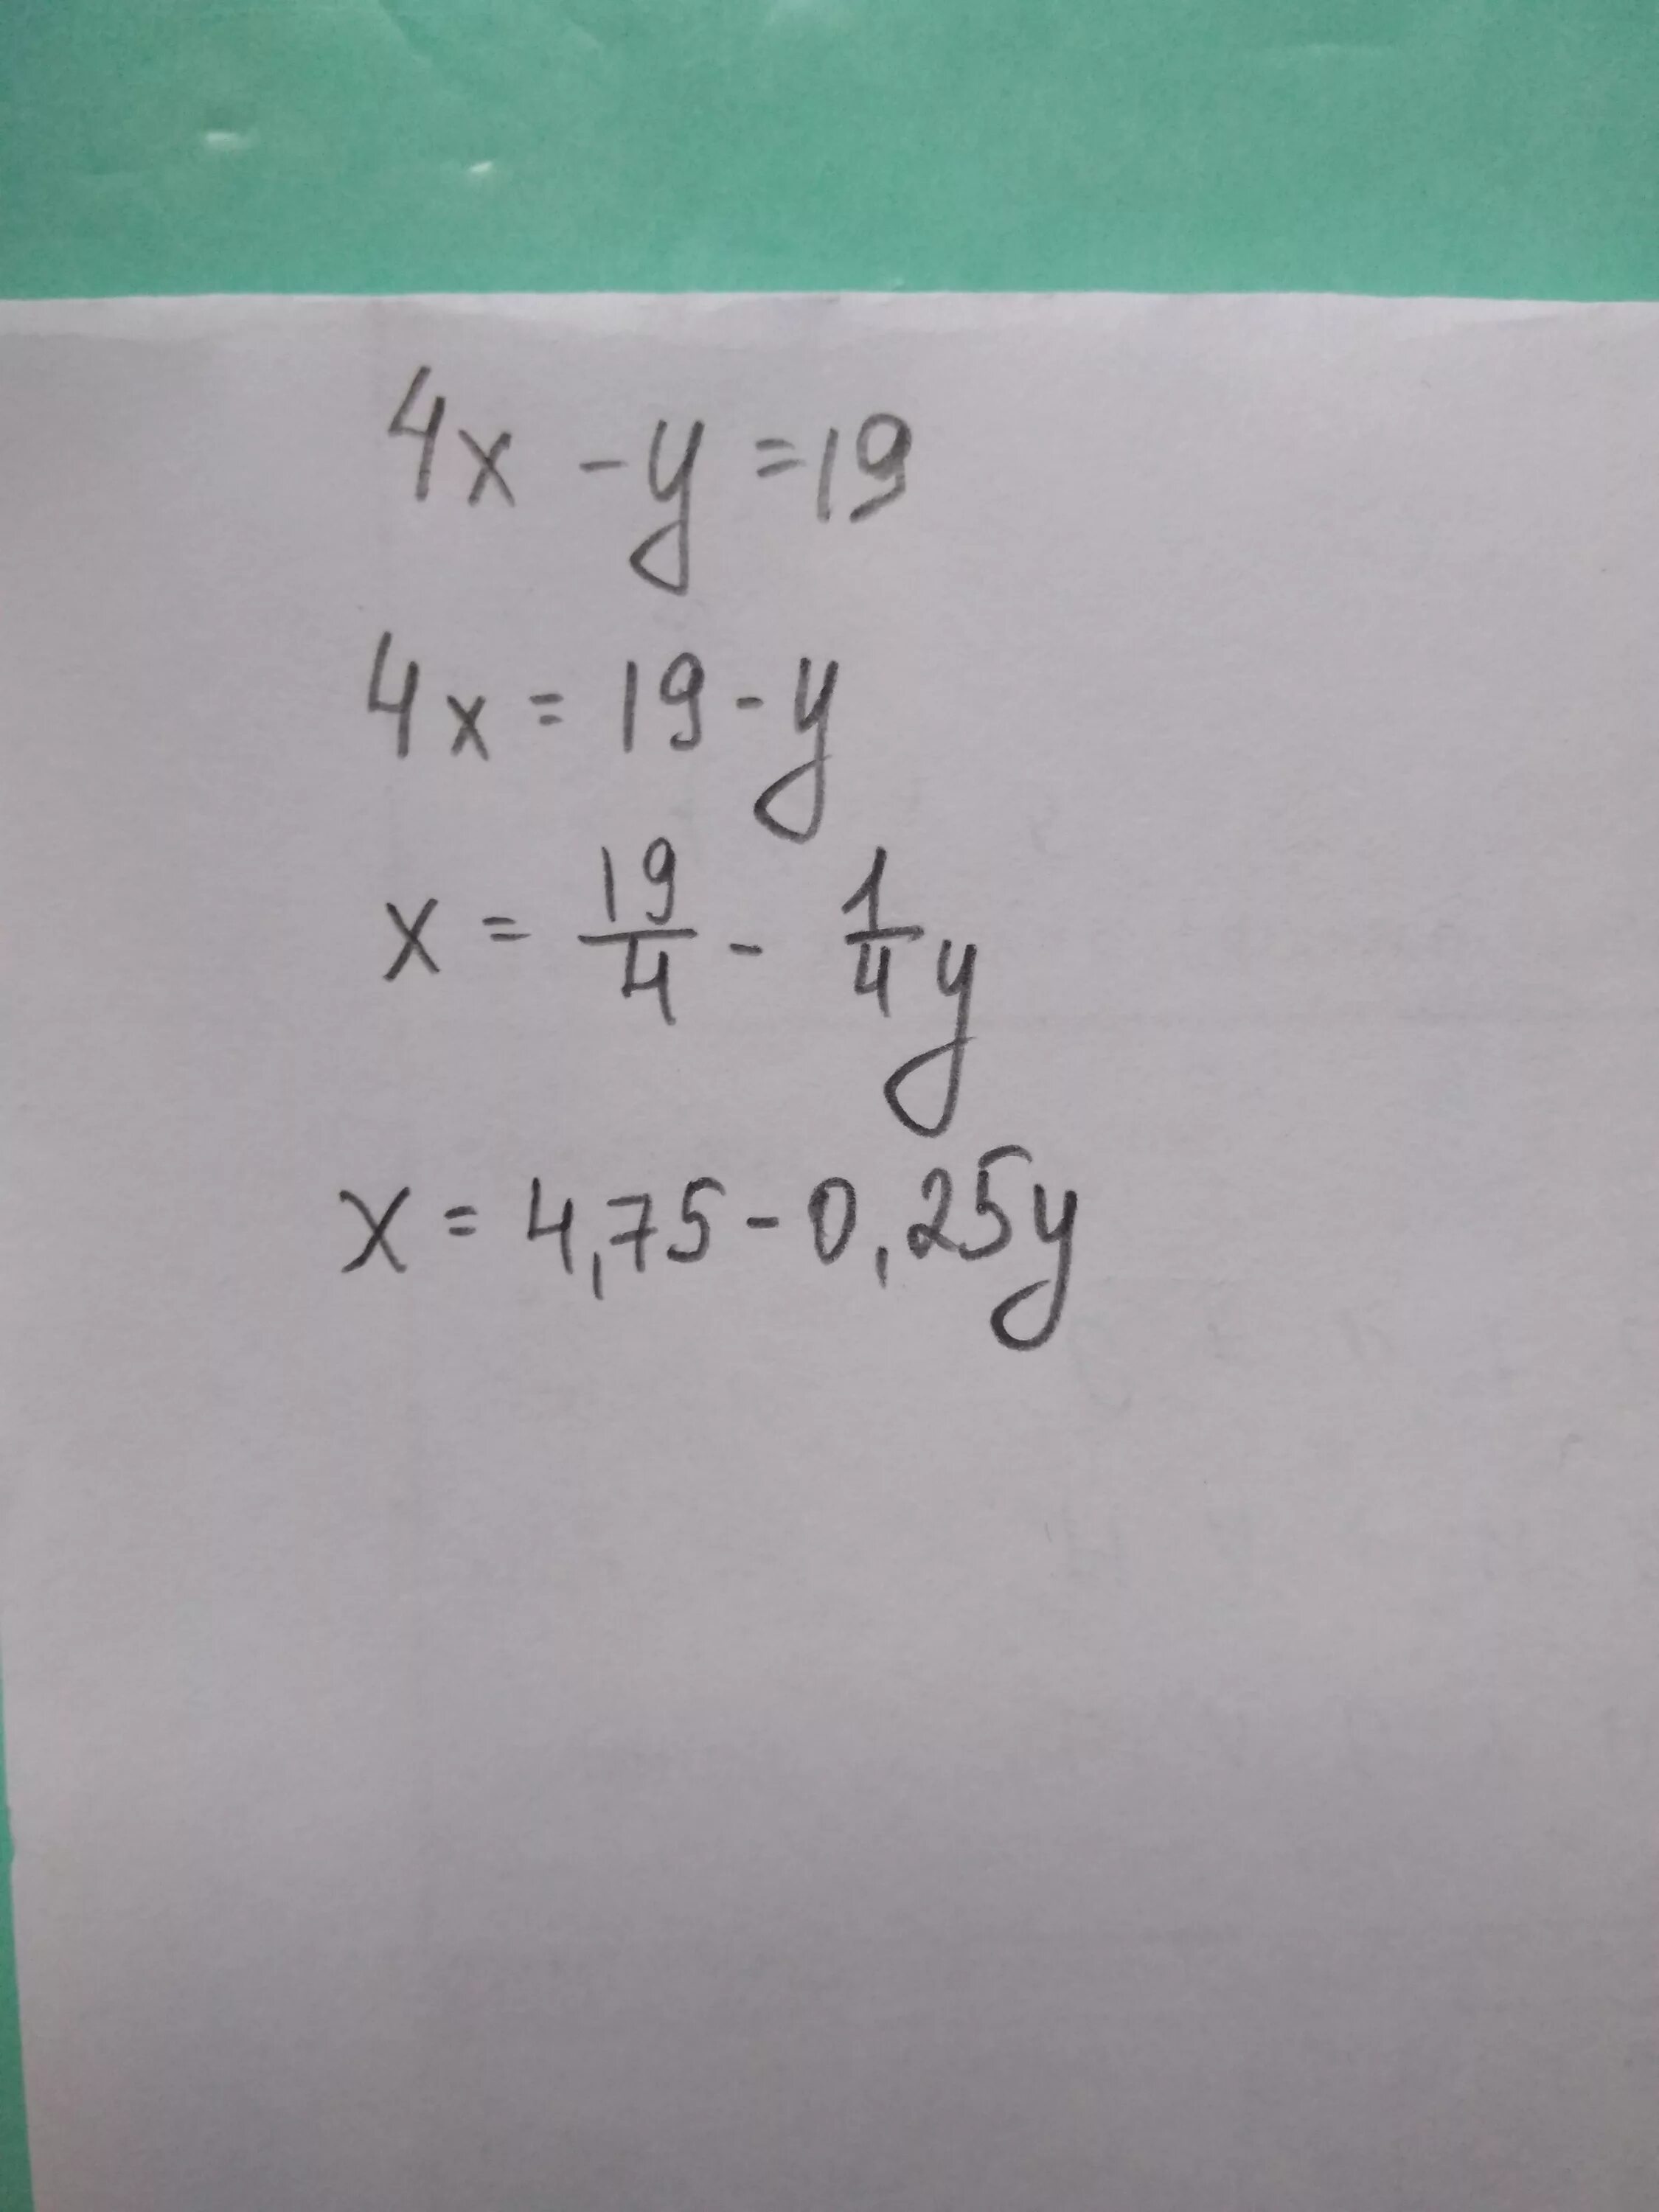 4x - y = 19
4x = 19 - y
x = 19/4 - 1/4 y
x = 4,75 - 0,25y